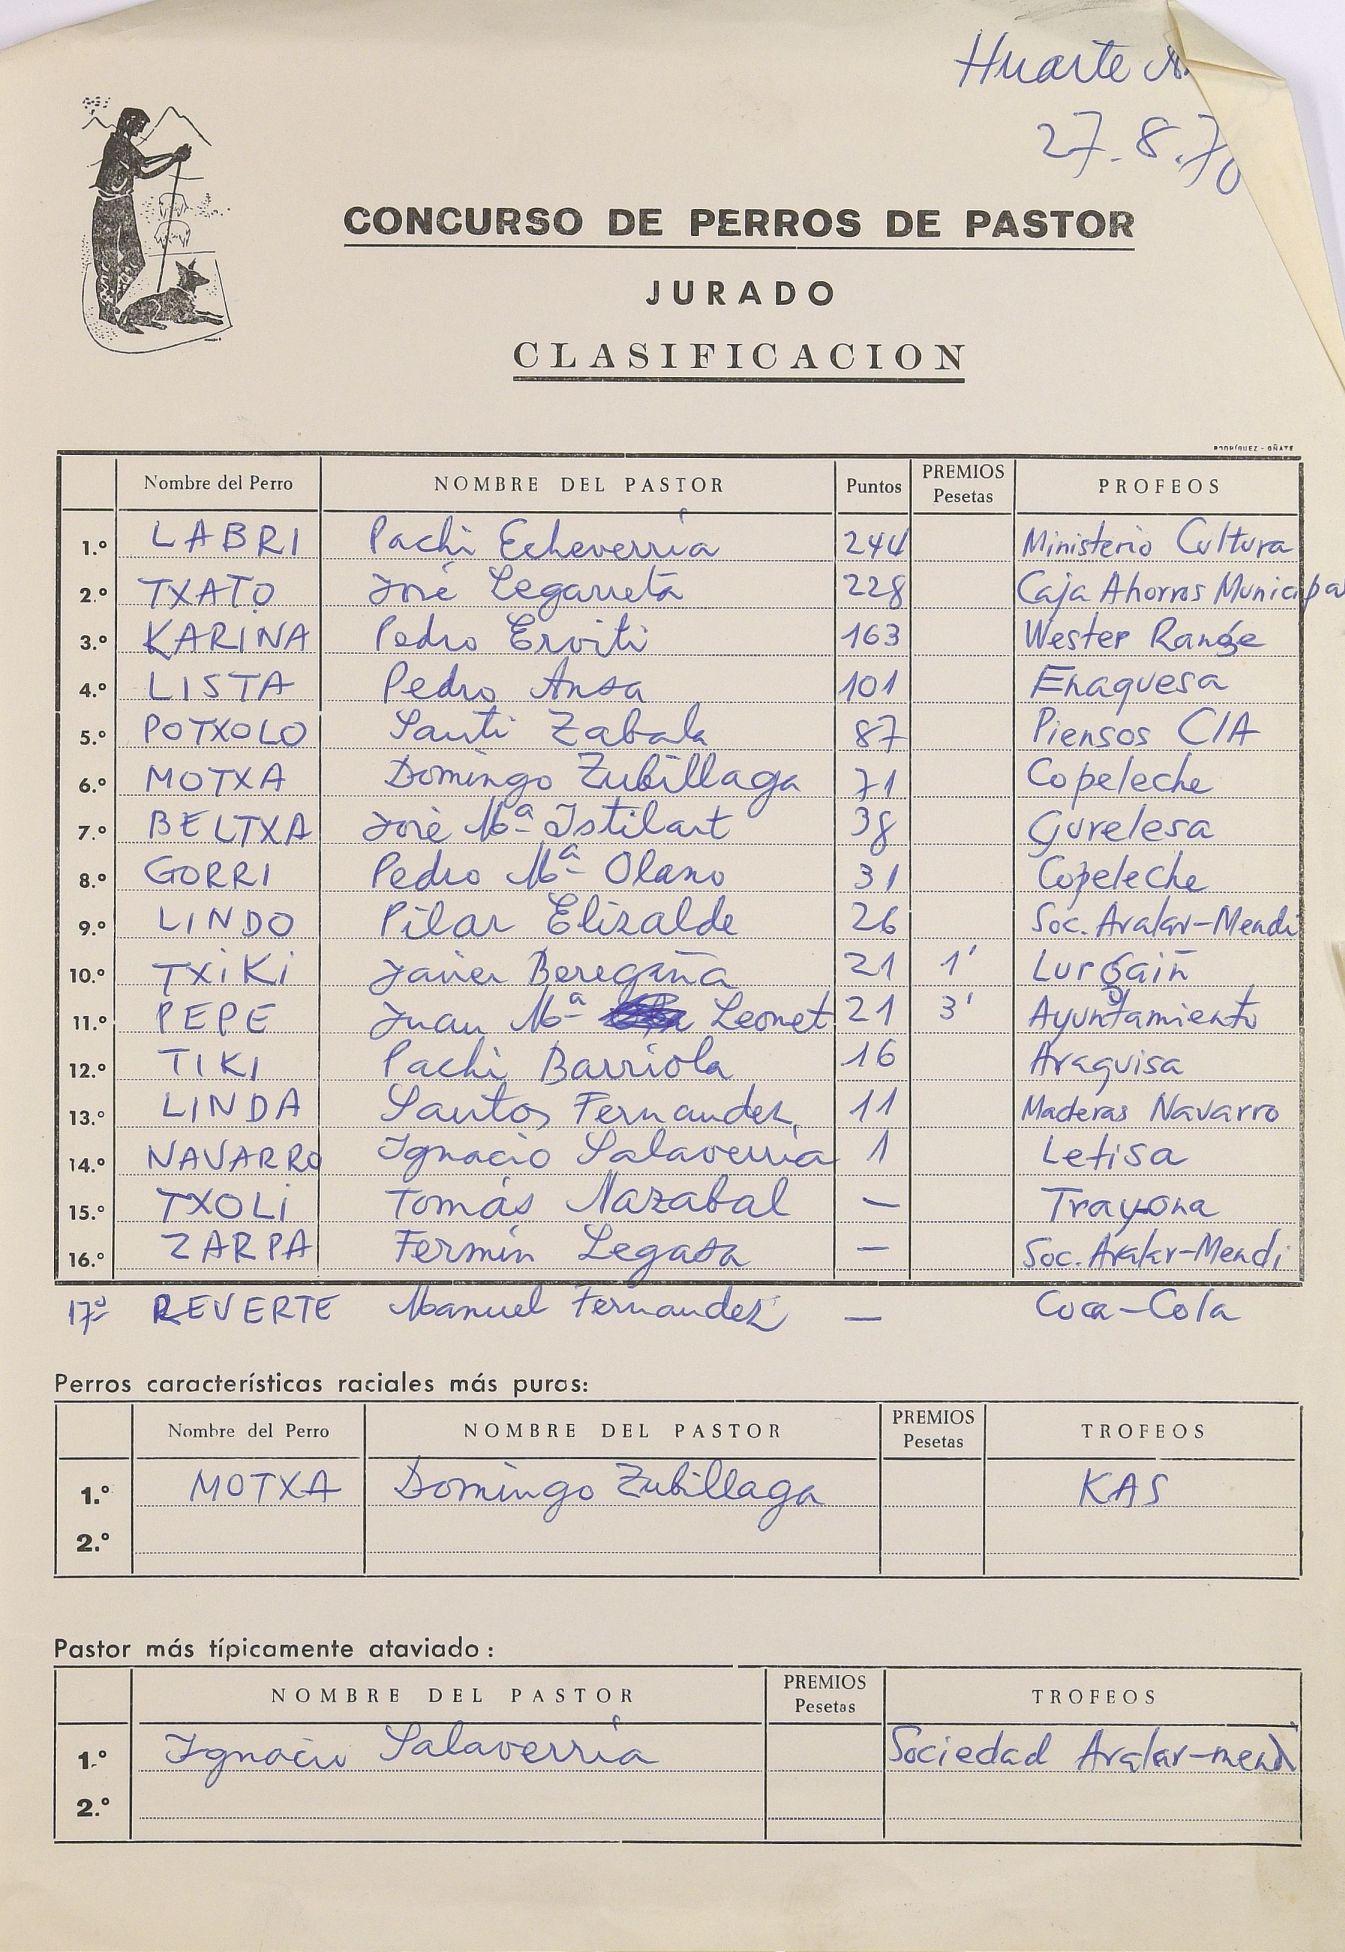 Huarte
27.8.70
CONCURSO DE PERROS DE PASTOR
JURADO
CLASIFICACION
RODRÍGUEZ - OÑATE
Nombre del Perro NOMBRE DEL PASTOR Puntos PREMIOS Pesetas PROFEOS
1.º LABRI Pachi Echeverría 244 Ministerio Cultura
2.º TXATO José Legarreta 228 Caja Ahorros Municipal
3.º KARINA Pedro Erviti 163 Wester Range
4.º LISTA Pedro Ansa 101 Enaquesa
5.º POTXOLO Santi Zabala 87 Piensos CIA
6.º MOTXA Domingo Zubillaga 71 Copeleche
7.º BELTXA José Mª Istilart 38 Gurelesa
8.º GORRI Pedro Mª Olano 31 Copeleche
9.º LINDO Pilar Elizalde 26 Soc. Aralar-Mendi
10.º TXIKI Javier Beregaña 21 1' Lurgain
11.º PEPE Juan Mª Leonet 21 3' Ayuntamiento
12.º TIKI Pachi Barriola 16 Araquisa
13.º LINDA Santos Fernandez 11 Maderas Navarro
14.º NAVARRO Ignacio Salaverria 1 Letisa
15.º TXOLI Tomás Nazabal — Trayona
16.º ZARPA Fermín Legasa — Soc. Aralar-Mendi
17º REVERTE Manuel Fernandez — Coca-Cola
Perros características raciales más puras:
Nombre del Perro NOMBRE DEL PASTOR PREMIOS Pesetas TROFEOS
1.º MOTXA Domingo Zubillaga KAS
2.º
Pastor más típicamente ataviado:
NOMBRE DEL PASTOR PREMIOS Pesetas TROFEOS
1.º Ignacio Salaverría Sociedad Aralar-mendi
2.º